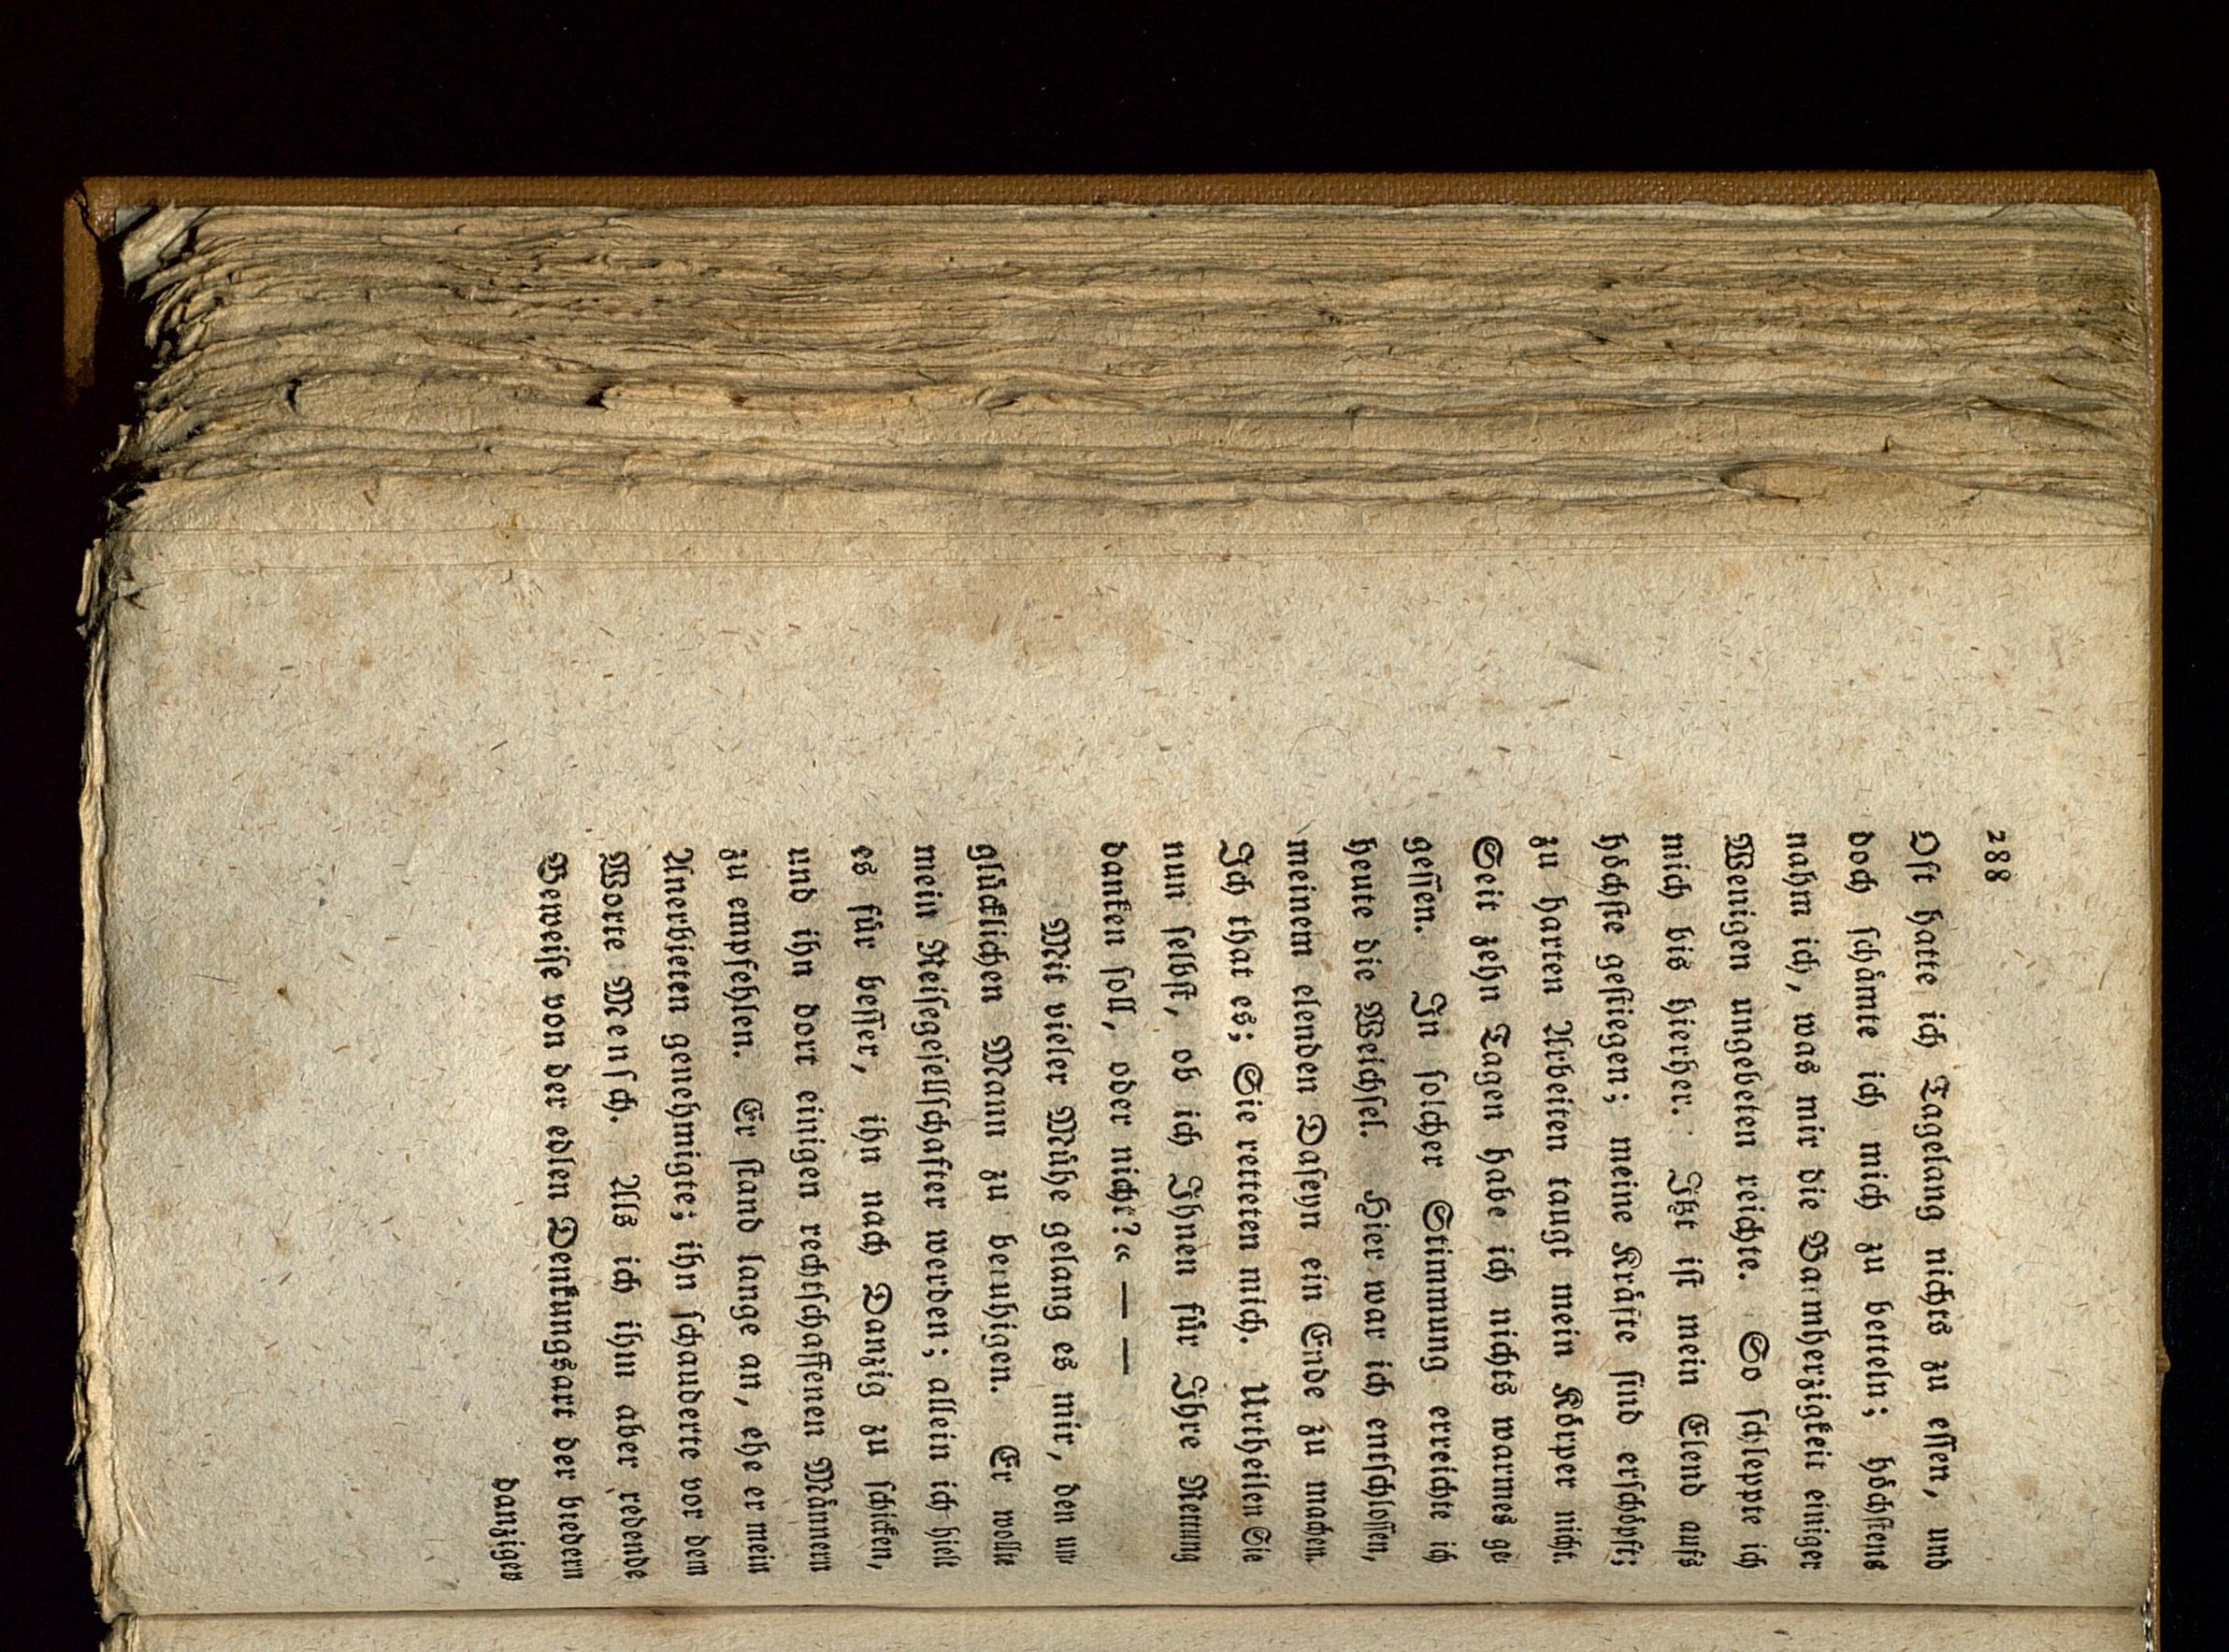 288
Oft hatte ich Tagelang nichts zu essen, und
doch schämte ich mich zu betteln; höchstens
nahm ich, was mir die Barmherzigkeit einiger
Wenigen ungebeten reichte. So schleppte ich
mich bis hierher. Itzt ist mein Elend aufs
höchste gestiegen; meine Kräfte sind erschöpft;
zu harten Arbeiten taugt mein Körper nicht.
Seit zehn Tagen habe ich nichts warmes ge
gessen. In solcher Stimmung erreichte ich
heute die Weichsel. Hier war ich entschlossen,
meinem elenden Daseyn ein Ende zu machen.
Ich that es; Sie retteten mich. Urtheilen Sie
nun selbst, ob ich Ihnen für Ihre Rettung
danken soll, oder nicht?« — —
Mit vieler Mühe gelang es mir, den un
glücklichen Mann zu beruhigen. Er wollte
mein Reisegesellschafter werden; allein ich hielt
es für besser, ihn nach Danzig zu schicken,
und ihn dort einigen rechtschaffenen Männern
zu empfehlen. Er stand lange an, ehe er mein
Anerbieten genehmigte; ihn schauderte vor dem
Worte Mensch. Als ich ihm aber redende
Beweise von der edlen Denkungsart der biedern
danziger